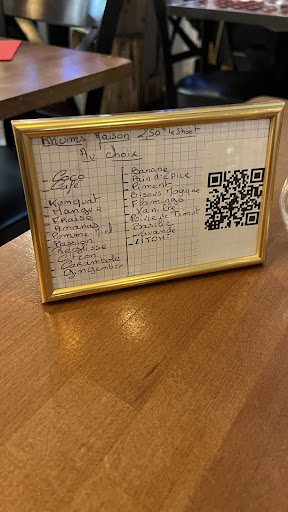 Rhums Maison 2,50 le shoot
Au choix
Coco
Café
Kumquat
Mangue
Fraise
Ananas
Pomme
Passion
Réglisse
Citron
Carambola
Gingembre
Banane
Pain d'épice
Piment
Bisous Magique
Flamingo
Vanille
Poivre de Timut
Basilic
Lavande
LITCHI